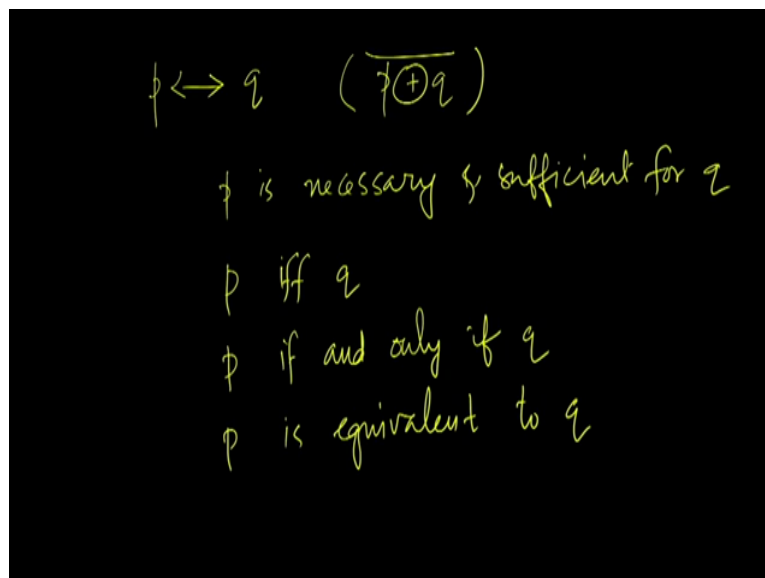 p ↔ q ( \overline{p ⊕ q} )
p is necessary & sufficient for q
p iff q
p if and only if q
p is equivalent to q